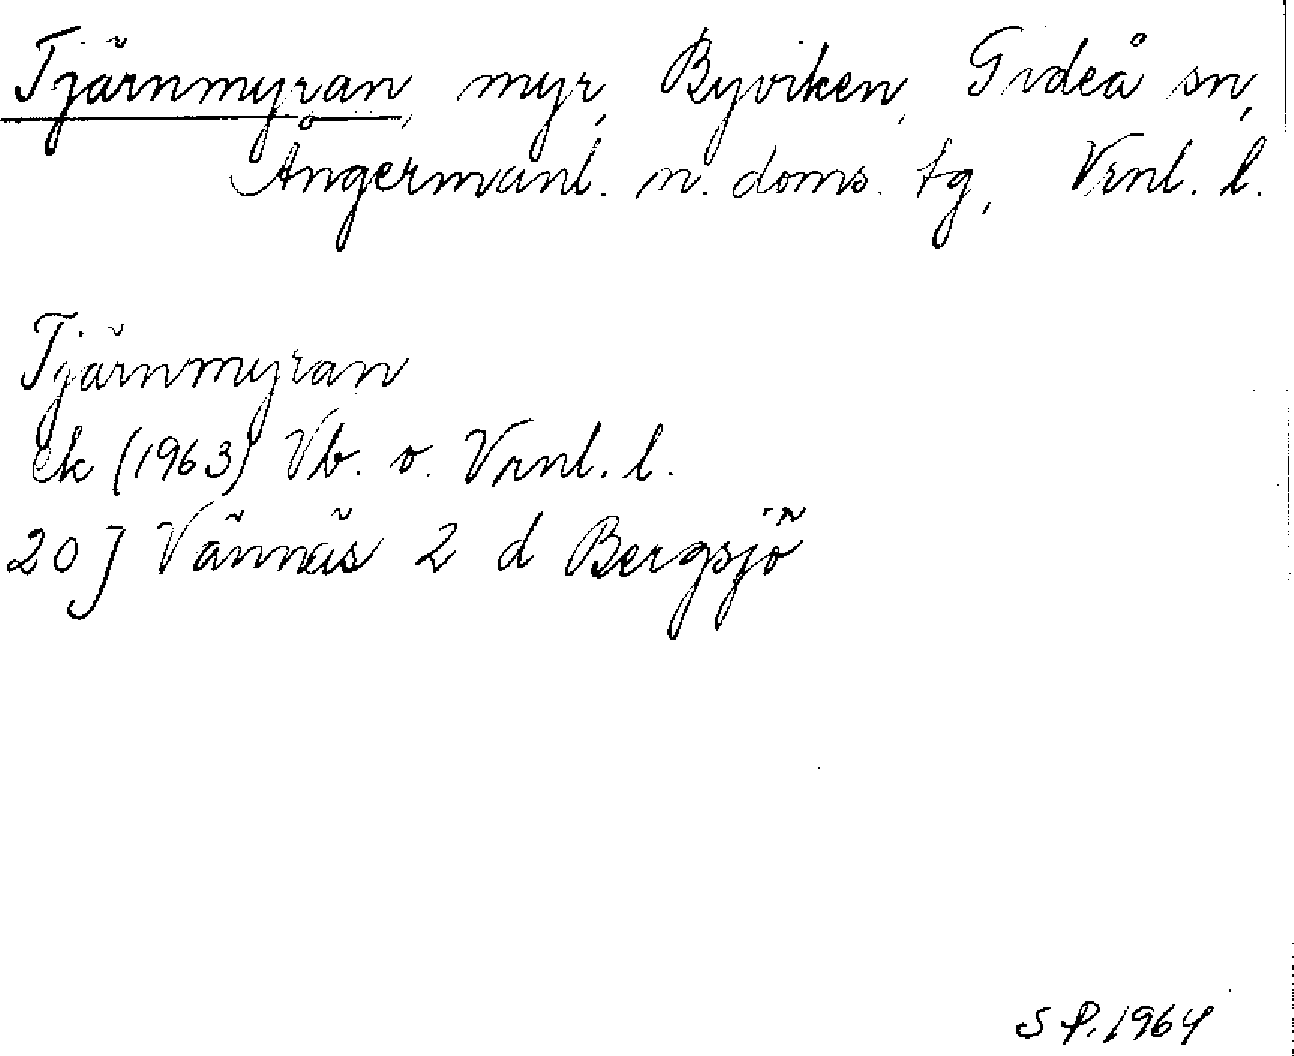 Tjärnmyran, myr, Byviken, Gideå sn,
Ångermanl. n. doms. tg, Vrnl. l.
Tjärnmyran
ek (1963) Vb. o. Vrnl. l.
20 J Vännäs 2 d Bergsjö
S P. 1964